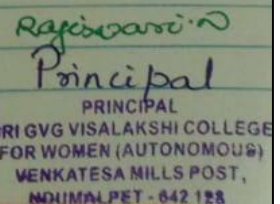 Rajeswari. N
Principal
PRINCIPAL
RI GVG VISALAKSHI COLLEGE
FOR WOMEN (AUTONOMOUS)
VENKATESA MILLS POST,
UDUMALPET - 642 128